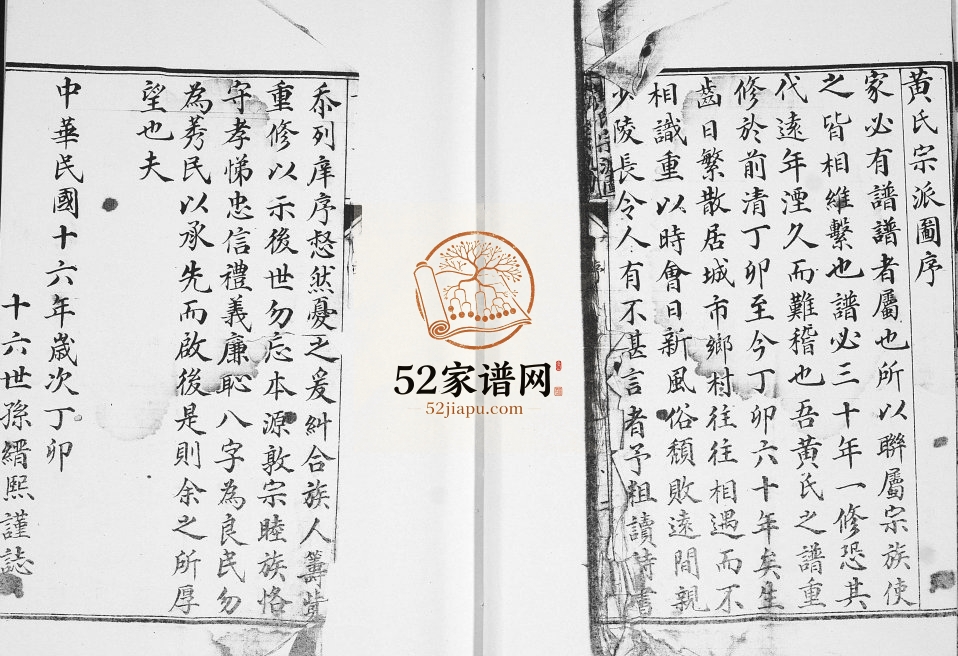 黃氏宗派圖序
家必有譜譜者屬也所以聯屬宗族使
之皆相維繫也譜必三十年一修恐其
代遠年湮久而難稽也吾黃氏之譜重
修於前清丁卯至今丁卯六十年矣生
齒日繁散居城市鄉村往往相遇而不
相識重以時會日新風俗頹敗遠間親
少陵長令人有不甚言者予粗讀詩書
忝列庠序惄然憂之爰糾合族人籌貲
重修以示後世勿忘本源敦宗睦族恪
守孝悌忠信禮義廉恥八字為良民勿
為莠民以承先而啟後是則余之所厚
望也夫
中華民國十六年歲次丁卯
十六世孫縉熙謹誌
52家谱网
52jiapu.com